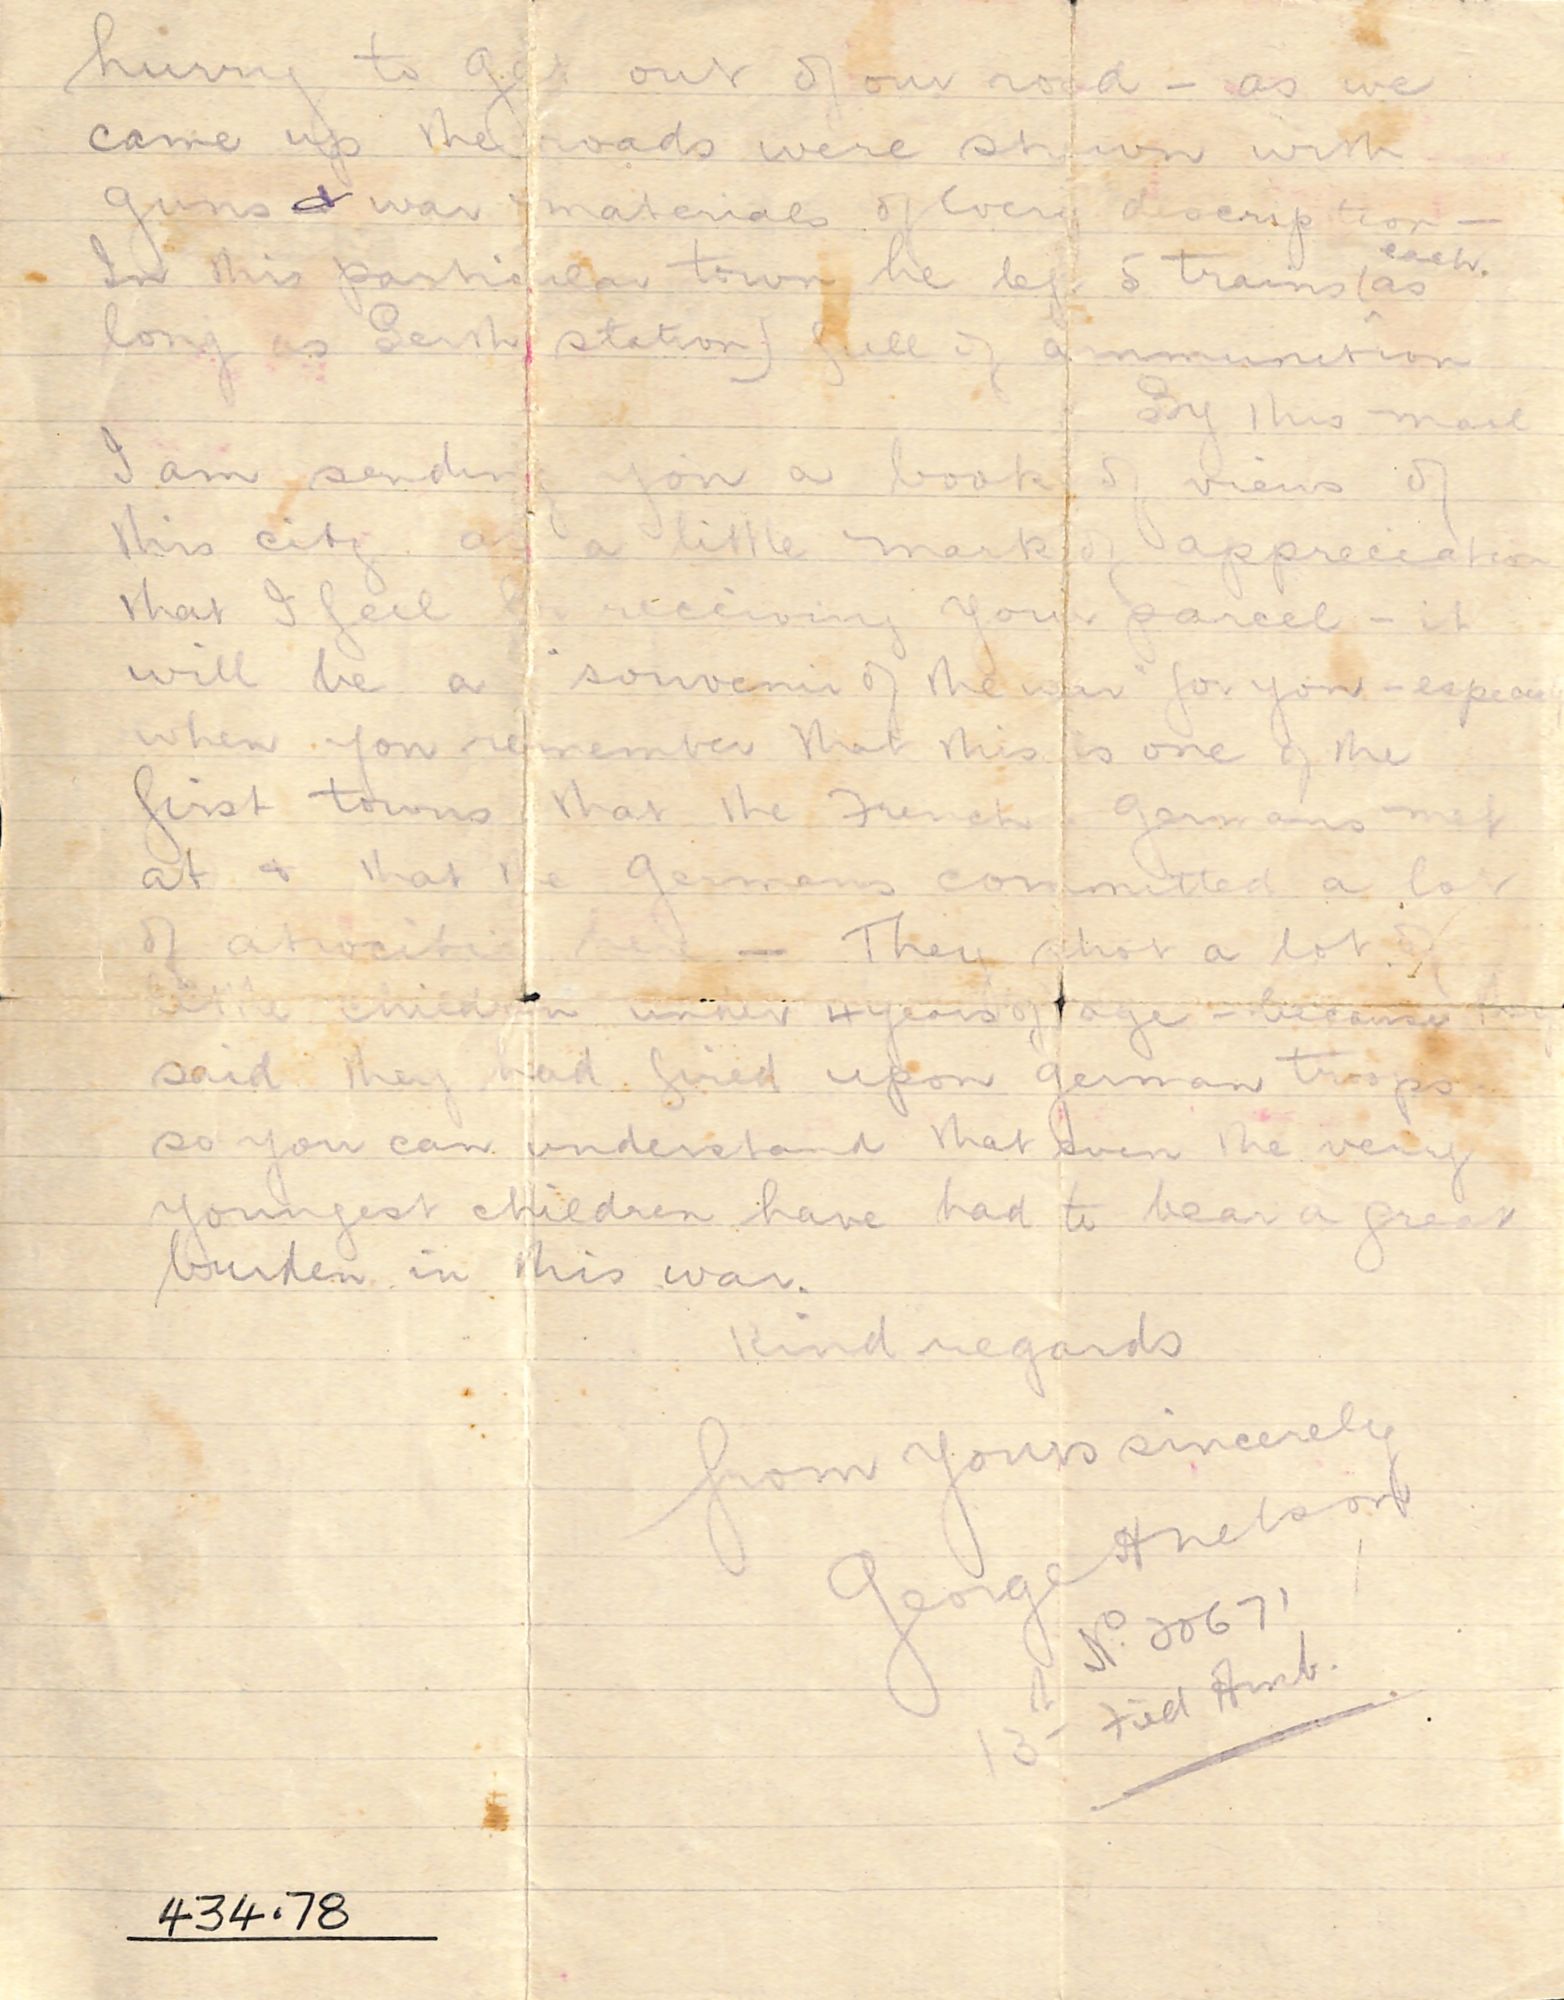 hurry to get out of our road - as we
came up the roads were strewn with
guns & war materials of every description -
In this particular town he left 5 trains (as
each.
long as Perth station) full of ammunition
By this mail
I am sending you a book of views of
this city as a little mark of appreciation
that I feel receiving your parcel - it
will be a "souvenir of the war" for you - especi
when you remember that this is one of the
first towns that the French Germans met
at & that the Germans committed a lot
of atrocities here - They shot a lot of
little children under 4 years of age - because they
said they had fired upon German troops
so you can understand that even the very
youngest children have had to bear a great
burden in this war.
Kind regards
from yours sincerely
George A Nelson
No. 20671
13th Field Amb.
434.78